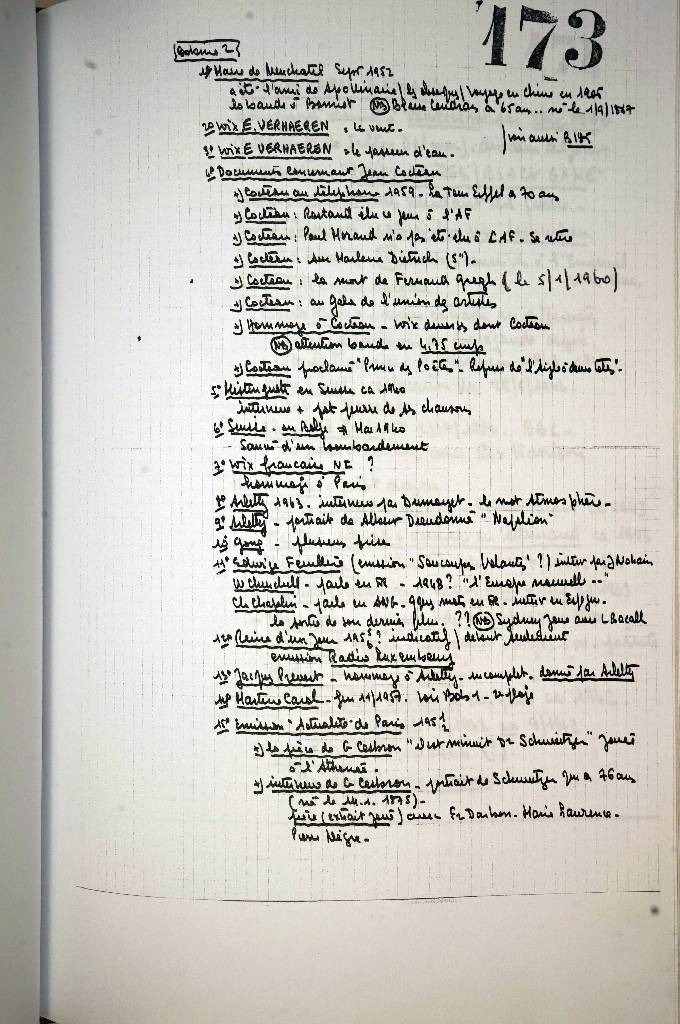 173
Bobine 2
1° Maire de Neuchatel Sept 1952
a été l'ami de Apollinaire / les obsèques / voyage en Chine en 1905
la bande à Bonnot (NB) Blaise Cendrars a 65 ans .. né le 1/9/1887
2° voix E. VERHAEREN : le vent.
3° voix E VERHAEREN : le passeur d'eau. voir aussi B 145
4° Documents concernant Jean Cocteau
a) Cocteau au téléphone 1959. La Tour Eiffel a 70 ans
a) Cocteau : Rostand élu ce jour à l'AF
a) Cocteau : Paul Morand n'a pas été élu à l'AF. Se retire
a) Cocteau : sur Marlene Dietrich (5").
a) Cocteau : la mort de Fernand Gregh (le 5/1/1960)
a) Cocteau : au Gala de l'union des artistes
a) Hommage à Cocteau - voix diverses dont Cocteau
(NB) attention bande en 4,75 cm/s
a) Cocteau proclamé "Prince des Poètes". Refus de "l'Aigle à deux têtes".
5° Mistinguett en Suisse ca 1940
interview + pot pourri de ses chansons
6° Suisse - en Belge Mai 1940
Sauvé d'un bombardement
7° voix française NE ?
hommage à Paris
8° Arletty 1963. interview par Dumayet. le mot Atmosphère.
9° Arletty - portrait de Albert Dieudonné "Napoléon"
10° Gong - plusieurs fois
11° Edwige Feuillère (emission "Soucoupes Volantes" ?) interv par J Nohain
W Churchill - parle en FR - 1948 ? "l'Europe nouvelle --"
Ch Chaplin - parle en ANG. qques mots en FR.
la sortie de son dernier film. ?? (NB) Sydney joue avec L Bacall
12° Reine d'un Jour 1955/6 ? indicatif / début seulement
emission Radio Luxembourg
13° Jacques Prevert - hommage à Arletty - incomplet. donné par Arletty
14° Martine Carol - 11/1957. voir Bob 1 - 2e plage
15° Emission "Actualité de Paris" 1951/2
a) la pièce de G Cesbron "Il est minuit Dr Schweitzer" jouée
à l'Athenée.
a) interview de G Cesbron - portrait de Schweitzer qui a 76 ans
(né le 14.1.1875) -
pièce (extrait joué) avec Fr Darbon. Marie Laurence.
Pierre Nègre.